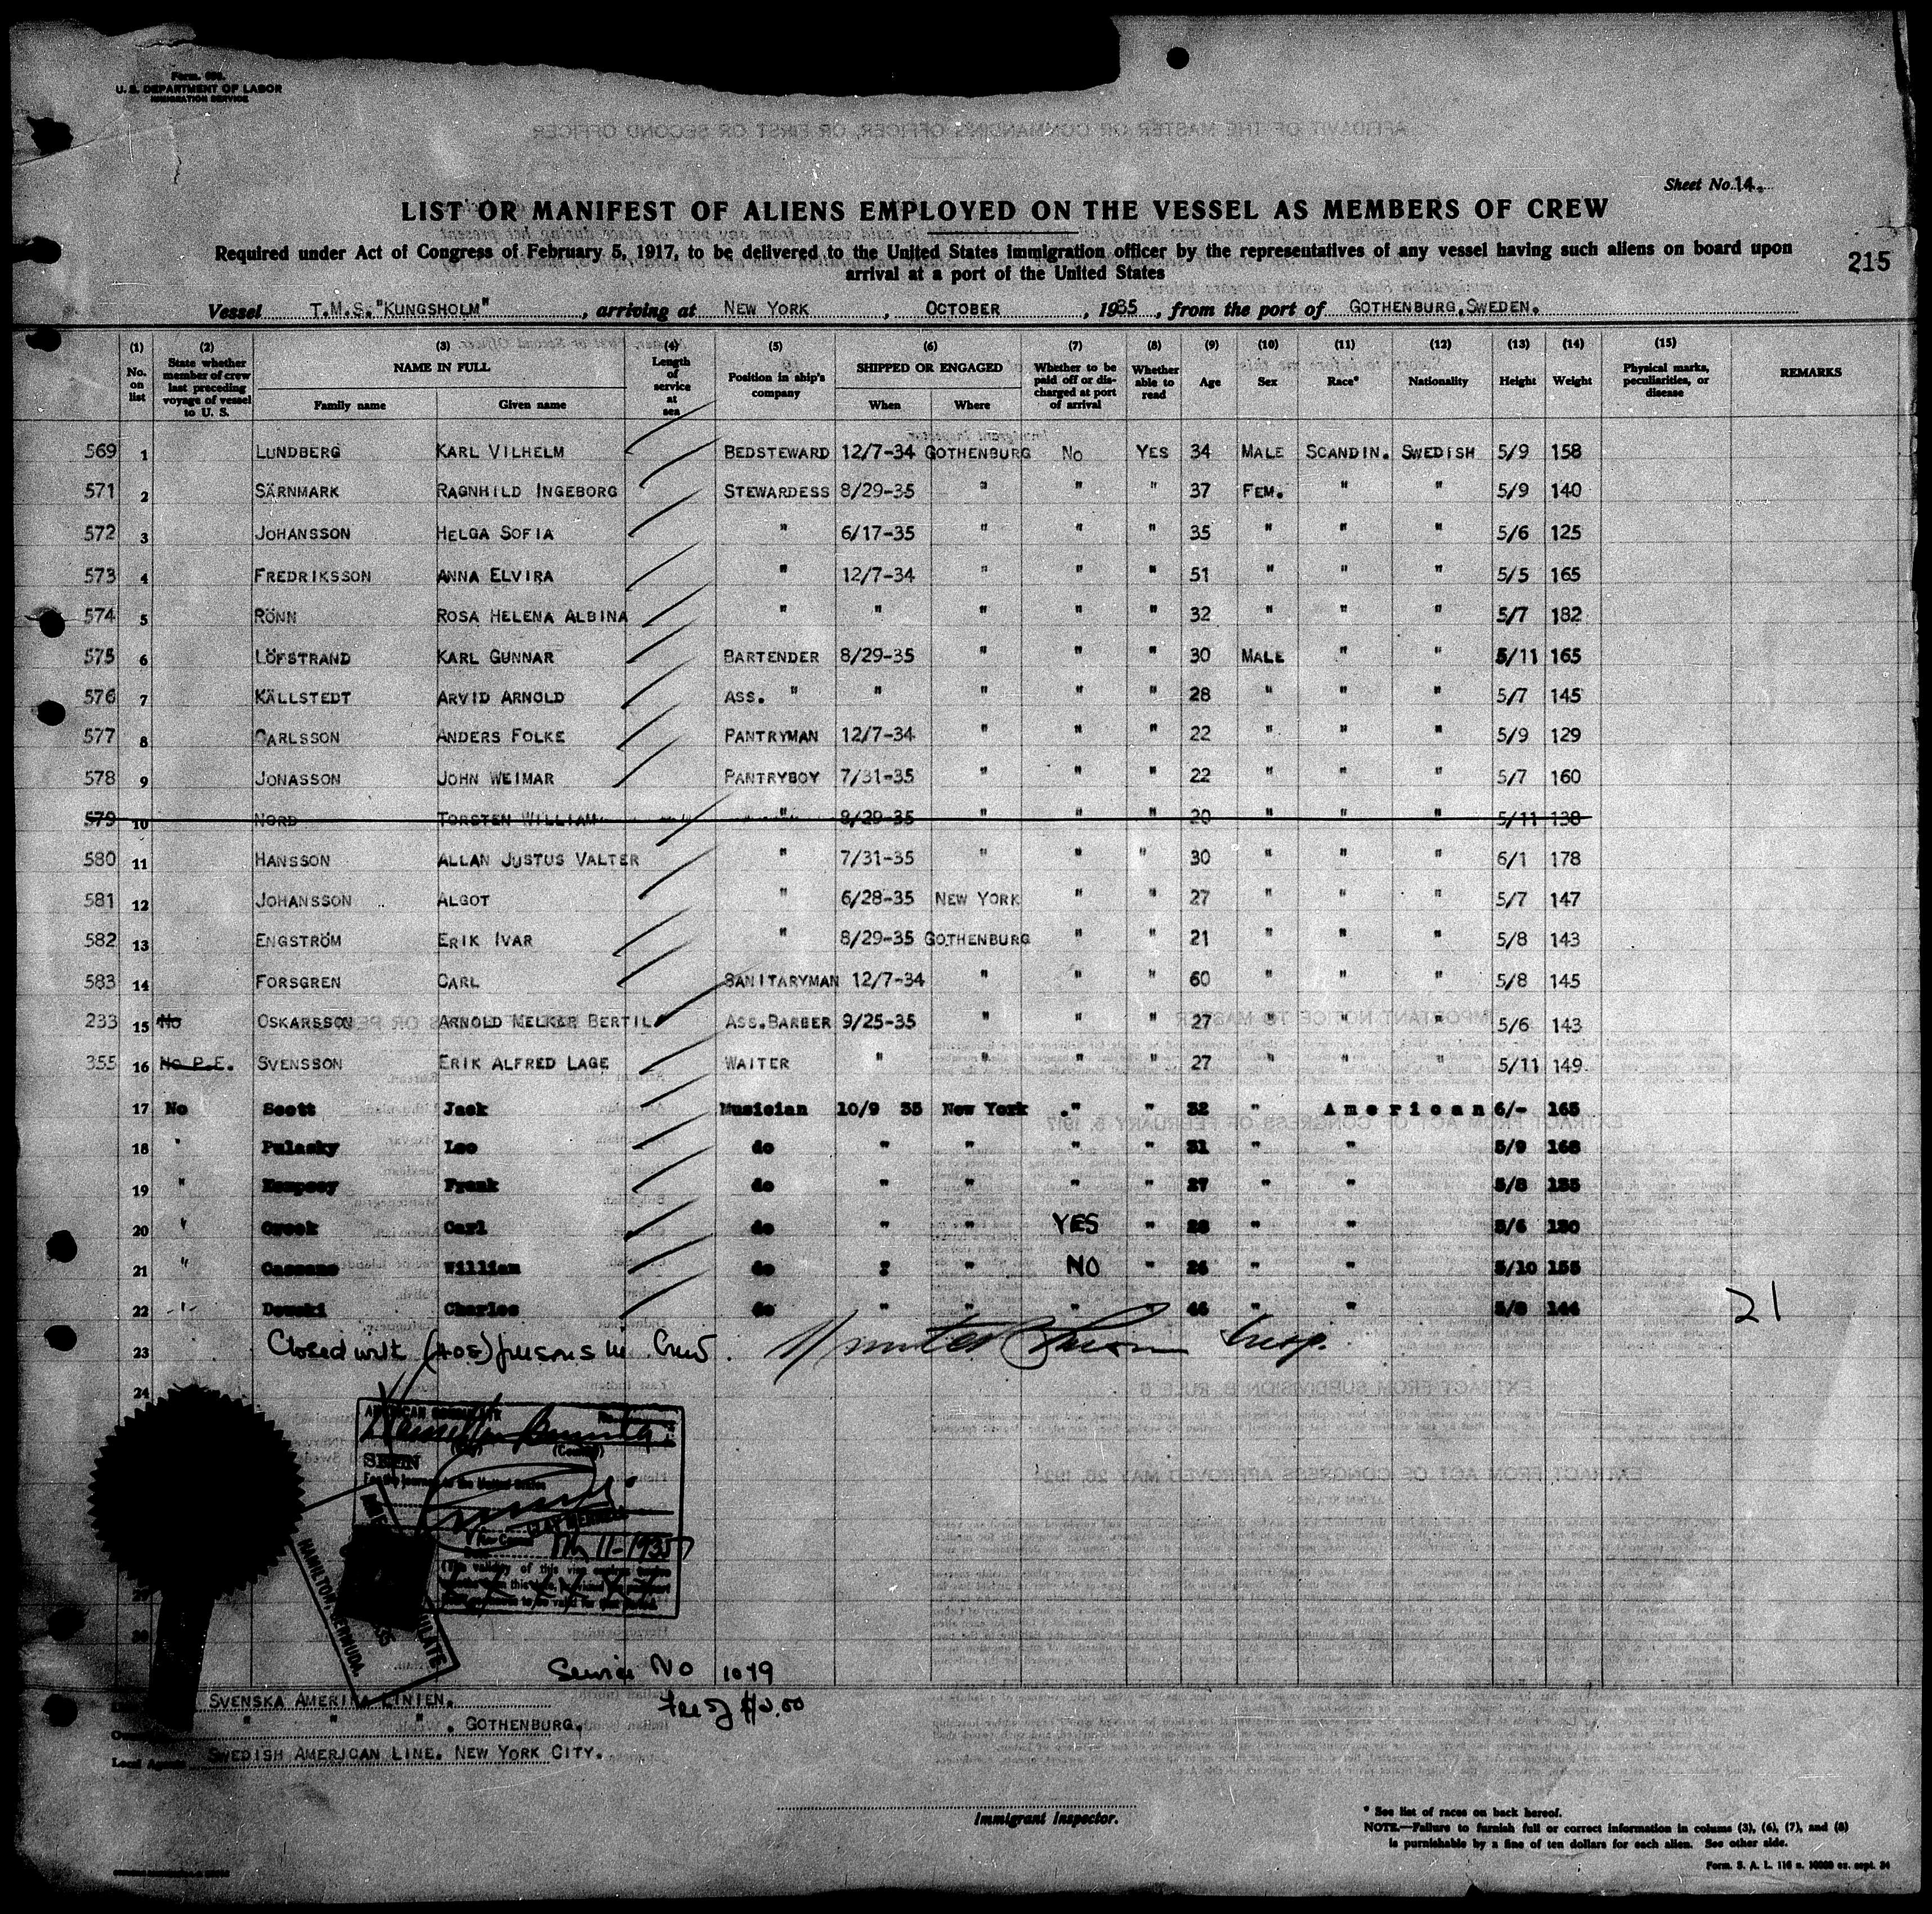 Form 689.
U. S. DEPARTMENT OF LABOR
IMMIGRATION SERVICE
Sheet No. 14.
LIST OR MANIFEST OF ALIENS EMPLOYED ON THE VESSEL AS MEMBERS OF CREW
Required under Act of Congress of February 5, 1917, to be delivered to the United States immigration officer by the representatives of any vessel having such aliens on board upon
arrival at a port of the United States
215
Vessel T.M.S. "KUNGSHOLM", arriving at NEW YORK, OCTOBER, 1935, from the port of GOTHENBURG, SWEDEN.
(1) No. on list (2) State whether member of crew last preceding voyage of vessel to U. S. (3) NAME IN FULL Family name Given name (4) Length of service at sea (5) Position in ship's company (6) SHIPPED OR ENGAGED When Where (7) Whether to be paid off or discharged at port of arrival (8) Whether able to read (9) Age (10) Sex (11) Race* (12) Nationality (13) Height (14) Weight (15) Physical marks, peculiarities, or disease REMARKS
569 1 LUNDBERG KARL VILHELM BEDSTEWARD 12/7-34 GOTHENBURG NO YES 34 MALE SCANDIN. SWEDISH 5/9 158
571 2 SÄRNMARK RAGNHILD INGEBORG STEWARDESS 8/29-35 " " " 37 FEM. " " 5/9 140
572 3 JOHANSSON HELGA SOFIA " 6/17-35 " " " 35 " " " 5/6 125
573 4 FREDRIKSSON ANNA ELVIRA " 12/7-34 " " " 51 " " " 5/5 165
574 5 RÖNN ROSA HELENA ALBINA " " " " " 32 " " " 5/7 182
575 6 LÖFSTRAND KARL GUNNAR BARTENDER 8/29-35 " " " 30 MALE " " 5/11 165
576 7 KÄLLSTEDT ARVID ARNOLD ASS. " " " " " 28 " " " 5/7 145
577 8 CARLSSON ANDERS FOLKE PANTRYMAN 12/7-34 " " " 22 " " " 5/9 129
578 9 JONASSON JOHN WEIMAR PANTRYBOY 7/31-35 " " " 22 " " " 5/7 160
579 10 NORD TORSTEN WILLIAM " 8/29-35 " " " 20 " " " 5/11 138
580 11 HANSSON ALLAN JUSTUS VALTER " 7/31-35 " " " 30 " " " 6/1 178
581 12 JOHANSSON ALGOT " 6/28-35 NEW YORK " " 27 " " " 5/7 147
582 13 ENGSTRÖM ERIK IVAR " 8/29-35 GOTHENBURG " " 21 " " " 5/8 143
583 14 FORSGREN CARL SANITARYMAN 12/7-34 " " " 60 " " " 5/8 145
233 15 No OSKARSSON ARNOLD MELKER BERTIL ASS.BARBER 9/25-35 " " " 27 " " " 5/6 143
355 16 No P.E. SVENSSON ERIK ALFRED LAGE WAITER " " " " 27 " " " 5/11 149
17 No Scott Jack Musician 10/9 35 New York " " 32 " American 6/- 165
18 " Pulasky Leo do " " " " 31 " " 5/9 168
19 " Frank do " " " " 27 " " 5/8 135
20 " Creek Carl do " " YES " " " 5/6 130
21 " Cassano William do " NO " 26 " " 5/10 155
22 " Dowski Charles do " " " " 46 " " 5/8 144
21
23 Closed with (405) persons in Crew. Insp.
24
AMERICAN CONSULATE No.
Hamilton Bermuda
(City) (Country)
SEEN
For the journey to the United States
Oct 11-1935
(The validity of this visa
HAMILTON, BERMUDA.
Service No 1079
Fee of $10.00
SVENSKA AMERIKA LINIEN.
" " " . GOTHENBURG.
Local Agents SWEDISH AMERICAN LINE. NEW YORK CITY.
Immigrant Inspector.
* See list of races on back hereof.
NOTE.—Failure to furnish full or correct information in colums (3), (6), (7), and (8)
is punishable by a fine of ten dollars for each alien. See other side.
Form. S. A. L. 116 a. 10000 ex. sept. 34